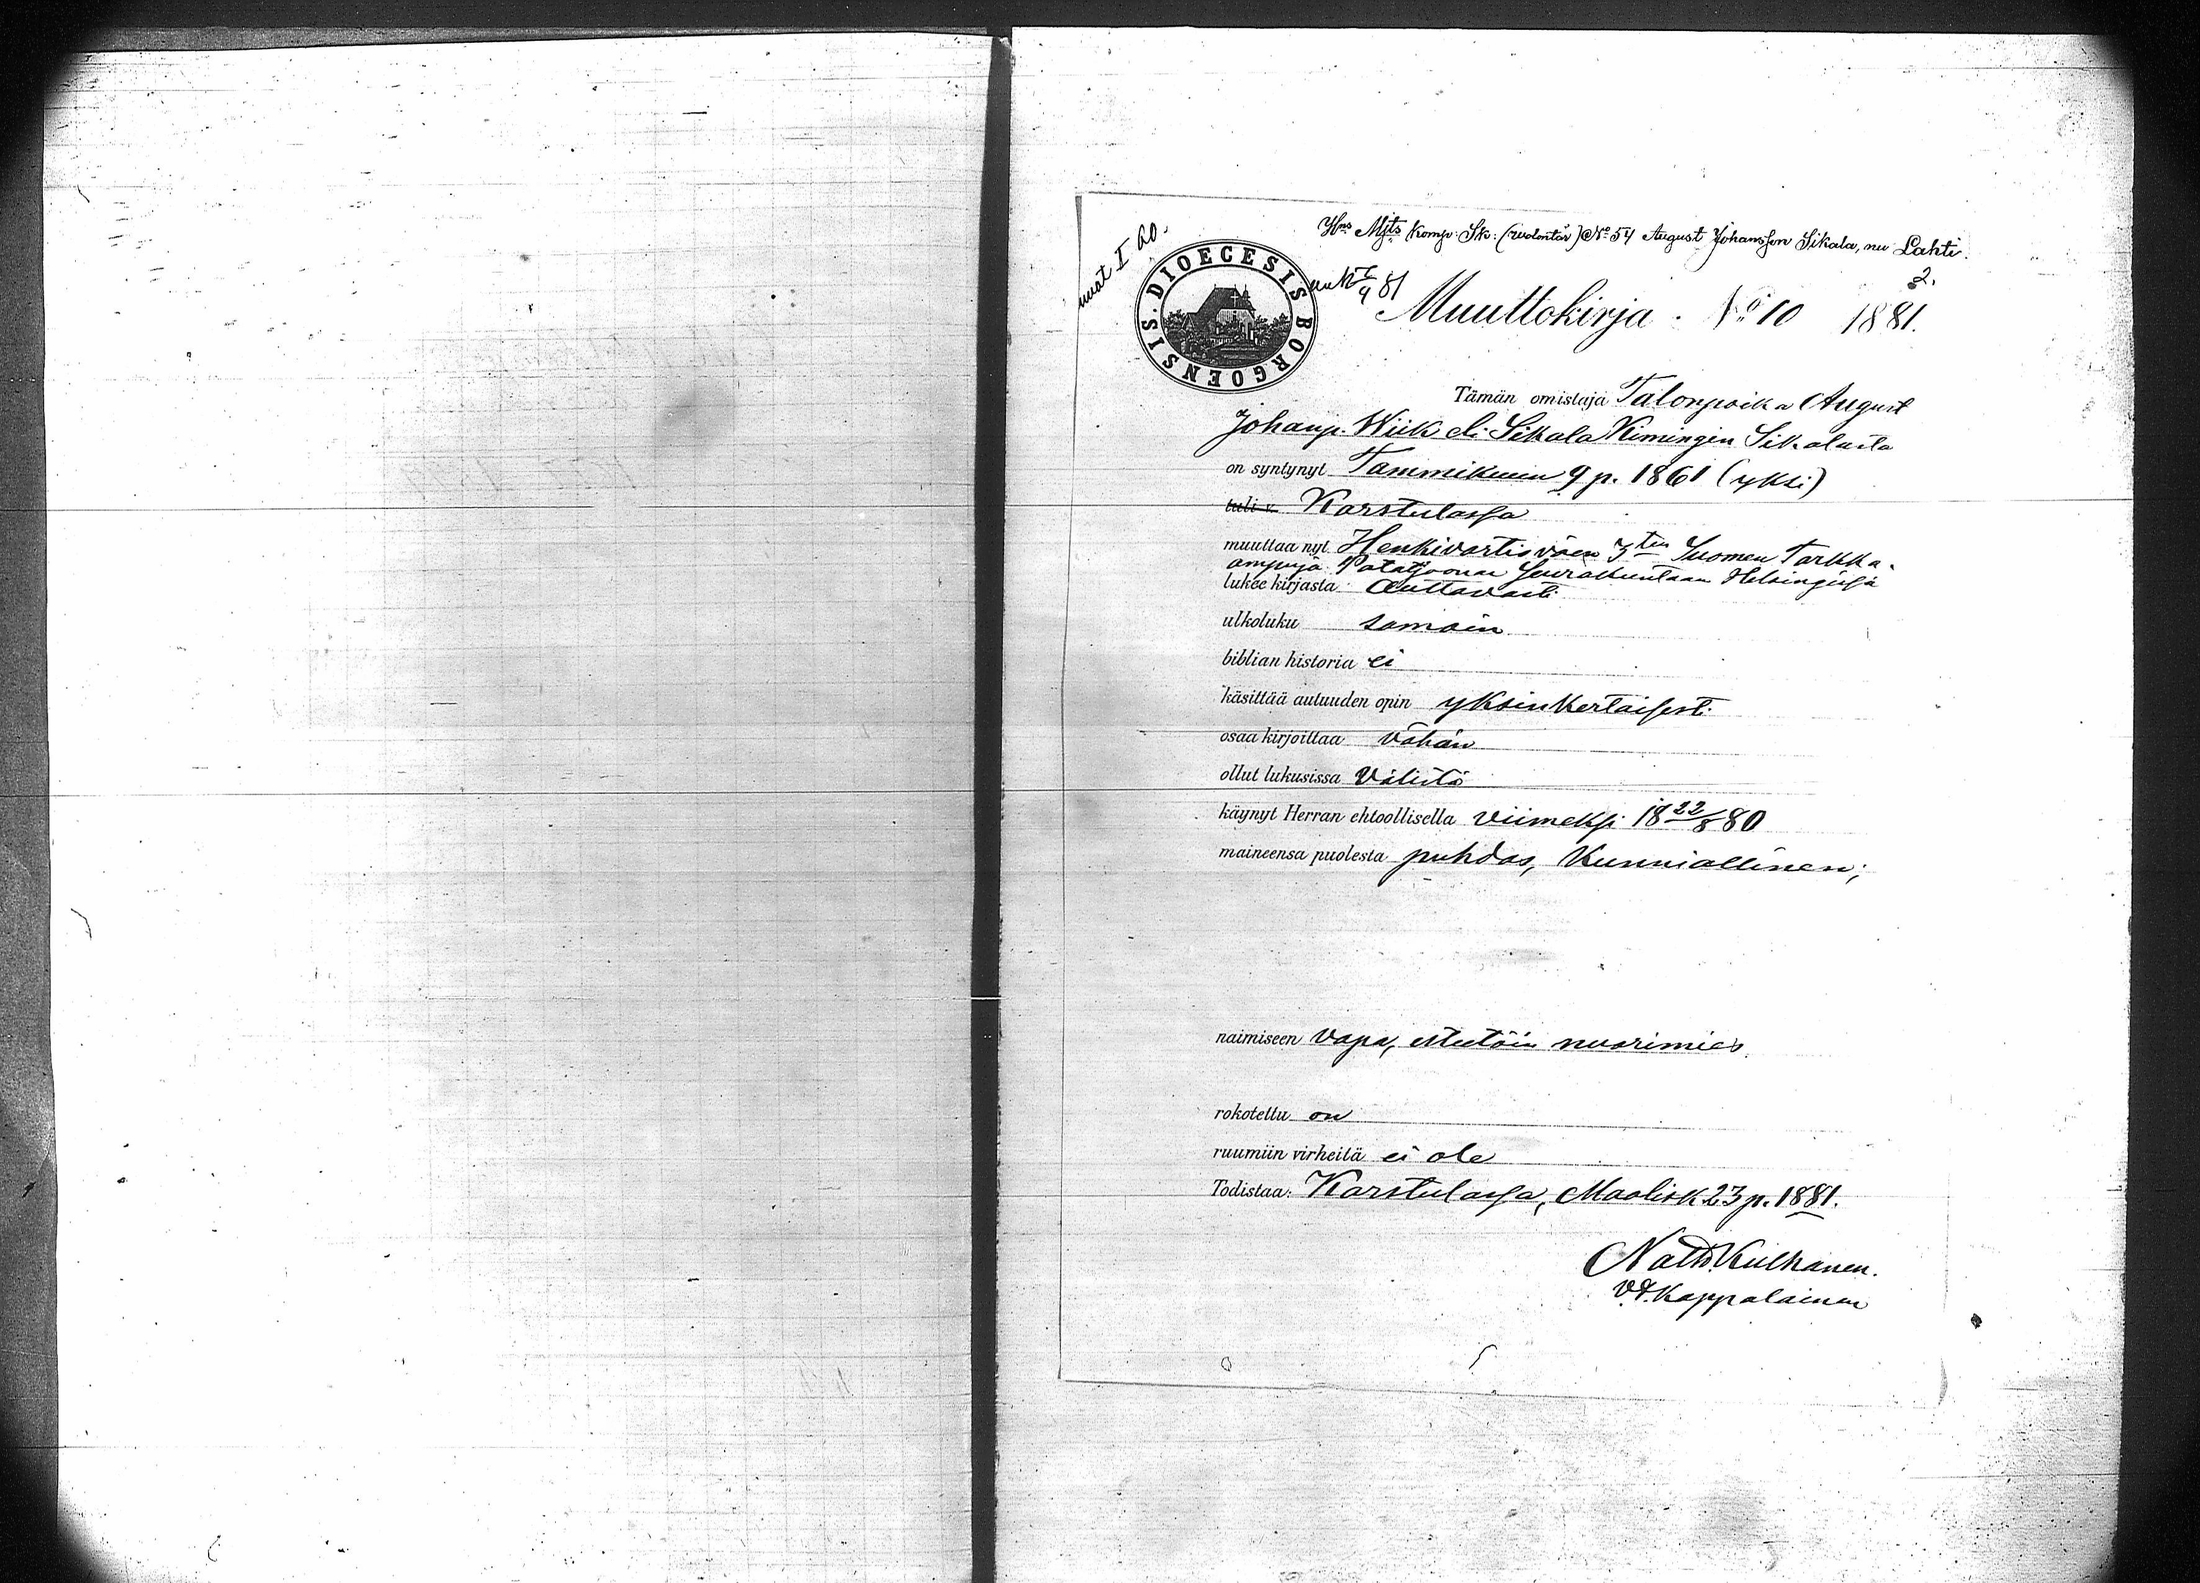 Hns Mjts Komp: Sk: (volontär) No 54 August Johansson Sikala, nu Lahti.
2.
I 60.
DIOECESIS BORGOENSIS.
81
Muuttokirja. No 10 1881.
Tämän omistaja Talonpoika August
Johanp. Wiik eli Sikala Kimingin Sikalasta
on syntynyt Tammikuun 9 p. 1861 (yksi)
tuli v. Karstulassa
muuttaa nyt Henkivartioväen 3ten Suomen Tarkka-
ampuja Pataljoonan Seurakuntaan Helsingissä
lukee kirjasta Auttavasti
ulkoluku samoin
biblian historia ei
käsittää autuuden opin yksinkertaisesti
osaa kirjoittaa vähän
ollut lukusissa Välistä
käynyt Herran ehtoollisella viimeksi 18 22/8 80
maineensa puolesta puhdas, Kunniallinen;
naimiseen vapa, esteetöin nuorimies
rokotettu on
ruumiin virheitä ei ole
Todistaa: Karstulassa, Maalisk 23 p. 1881.
Kulhanen.
V.t. Kappalainen